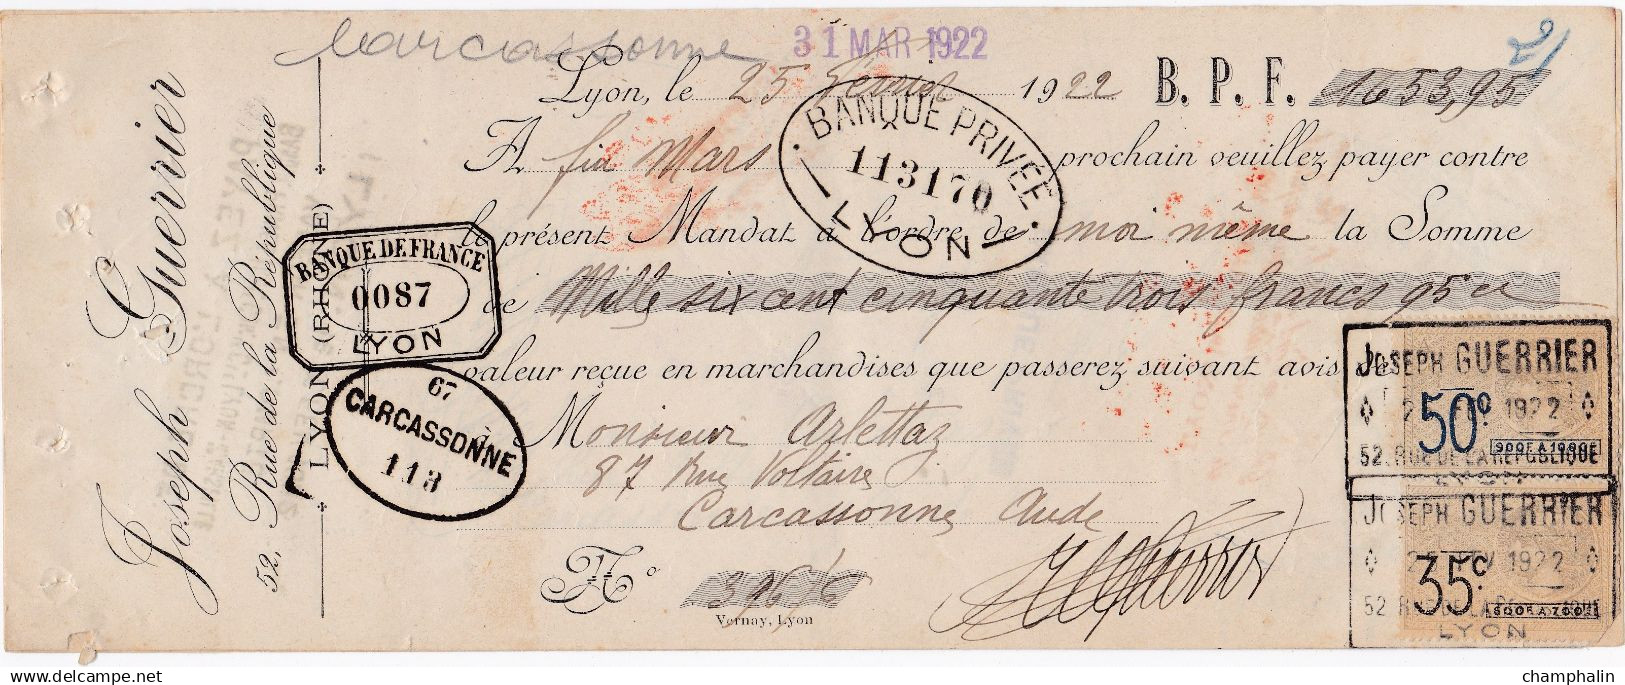 Carcassonne
31 MAR 1922
Lyon, le 25 février 1922 B. P. F. 1653,95
A fin Mars prochain veuillez payer contre
le présent Mandat à l'ordre de moi même la Somme
de Mille six cent cinquante trois francs 95 cs
valeur reçue en marchandises que passerez suivant avis de
Monsieur Arlettaz
87 Rue Voltaire
Carcassonne Aude
N° 396/6
Vernay, Lyon
Joseph Guerrier
52, Rue de la République
LYON (RHÔNE)
BANQUE PRIVÉE
113170
LYON
BANQUE DE FRANCE
0087
LYON
67
CARCASSONNE
113
JOSEPH GUERRIER
1922
50c
900F A 1000F
52 RUE DE LA RÉPUBLIQUE
LYON
JOSEPH GUERRIER
1922
35c
600F A 700F
52 RUE DE LA RÉPUBLIQUE
LYON
champhalin